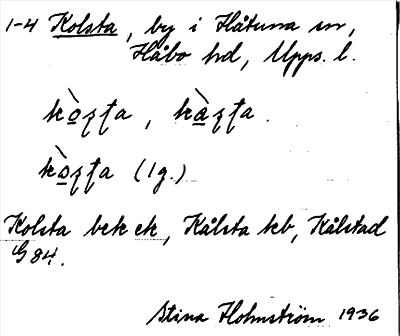 1-4 Kolsta, by i Håtuna sn,
Håbo hd, Upps. l.
kò̱ʂʈa, kà̱ʂʈa.
kò̱ʂʈa (lg.)
Kolsta bek ek, Kålsta kb, Kålstad
G 84.
Stina Holmström 1936